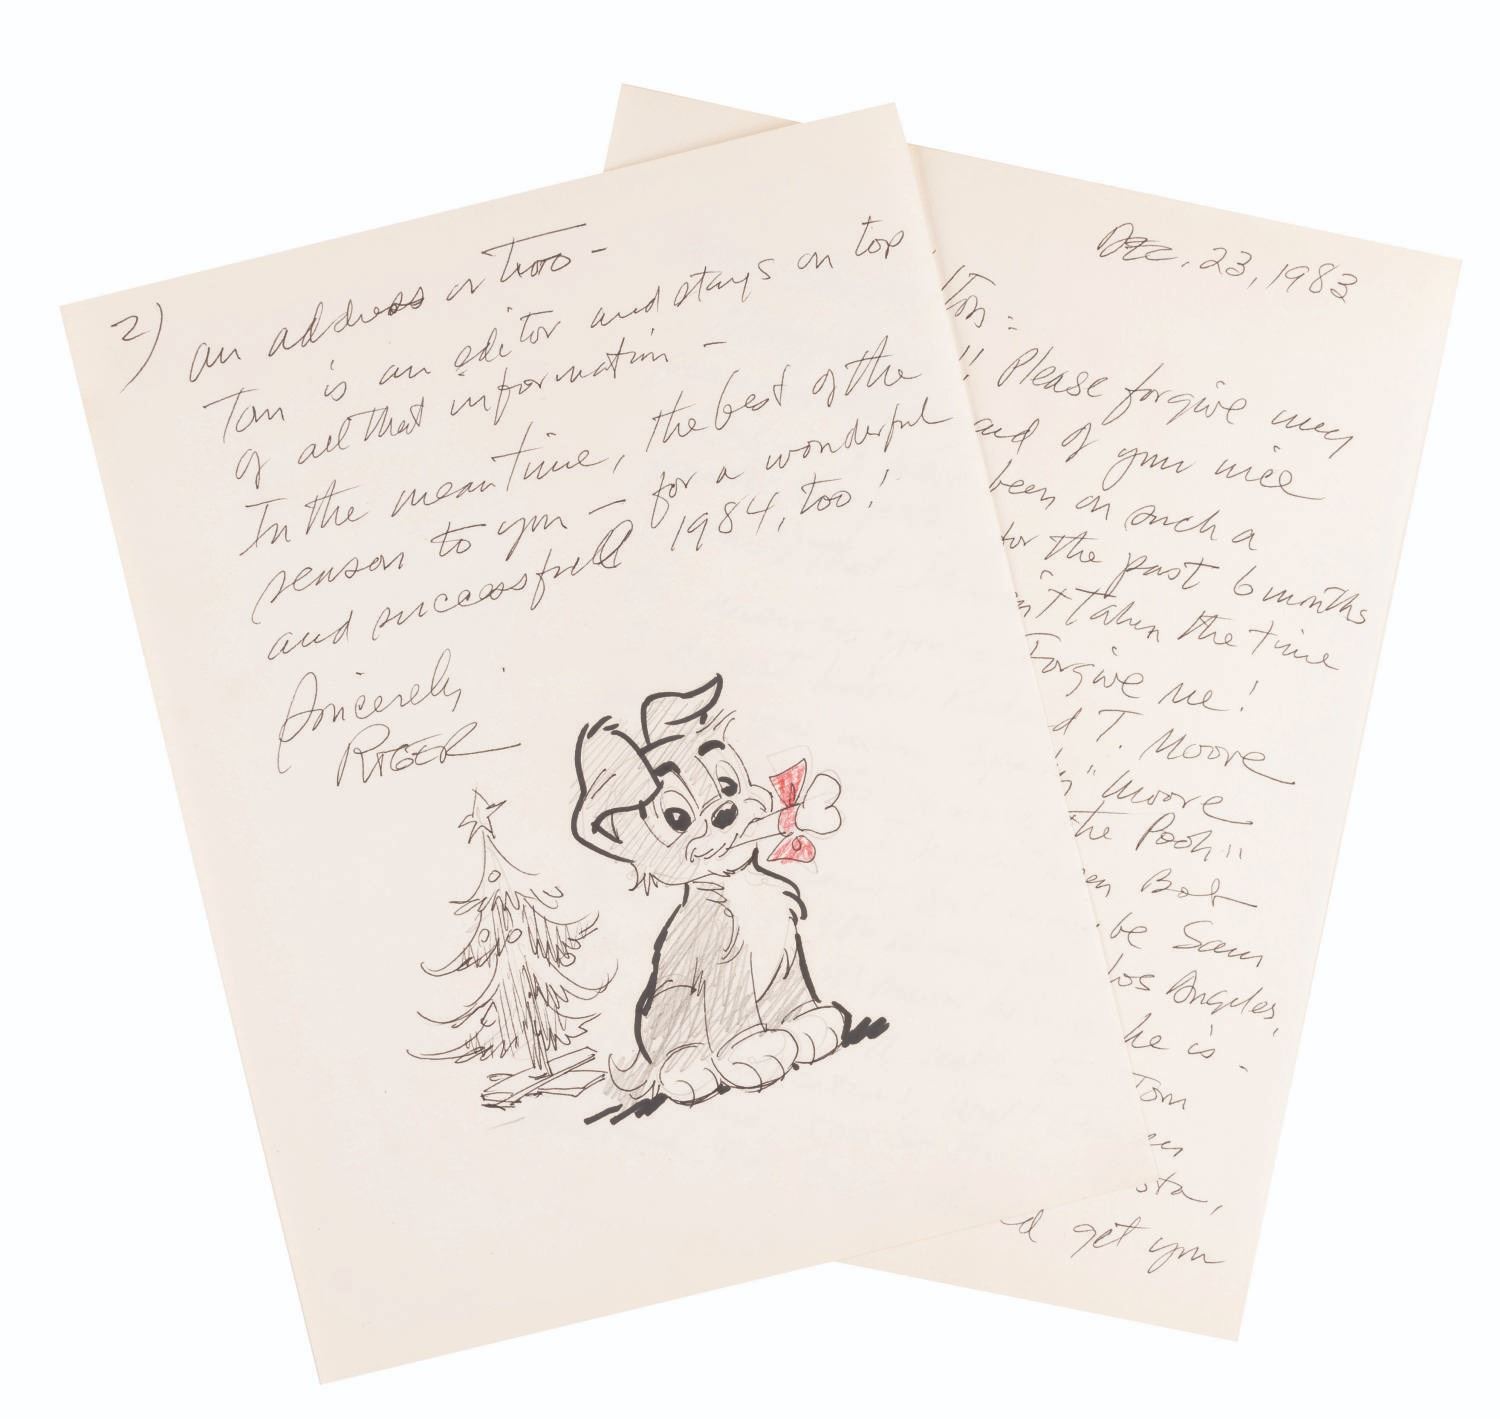 2) an address or two -
Tom is an editor and stays on top
of all that information -
In the meantime, the best of the
season to you - for a wonderful
and successfull 1984, too!
Sincerely
RIGER
DEC. 23, 1983
!! Please forgive my
of your nice
been on such a
for the past 6 months
taken the time
Forgive me!
T. Moore
" Moore
the Pooh"
Bob
be Sam
Los Angeles,
he is -
Tom
get you